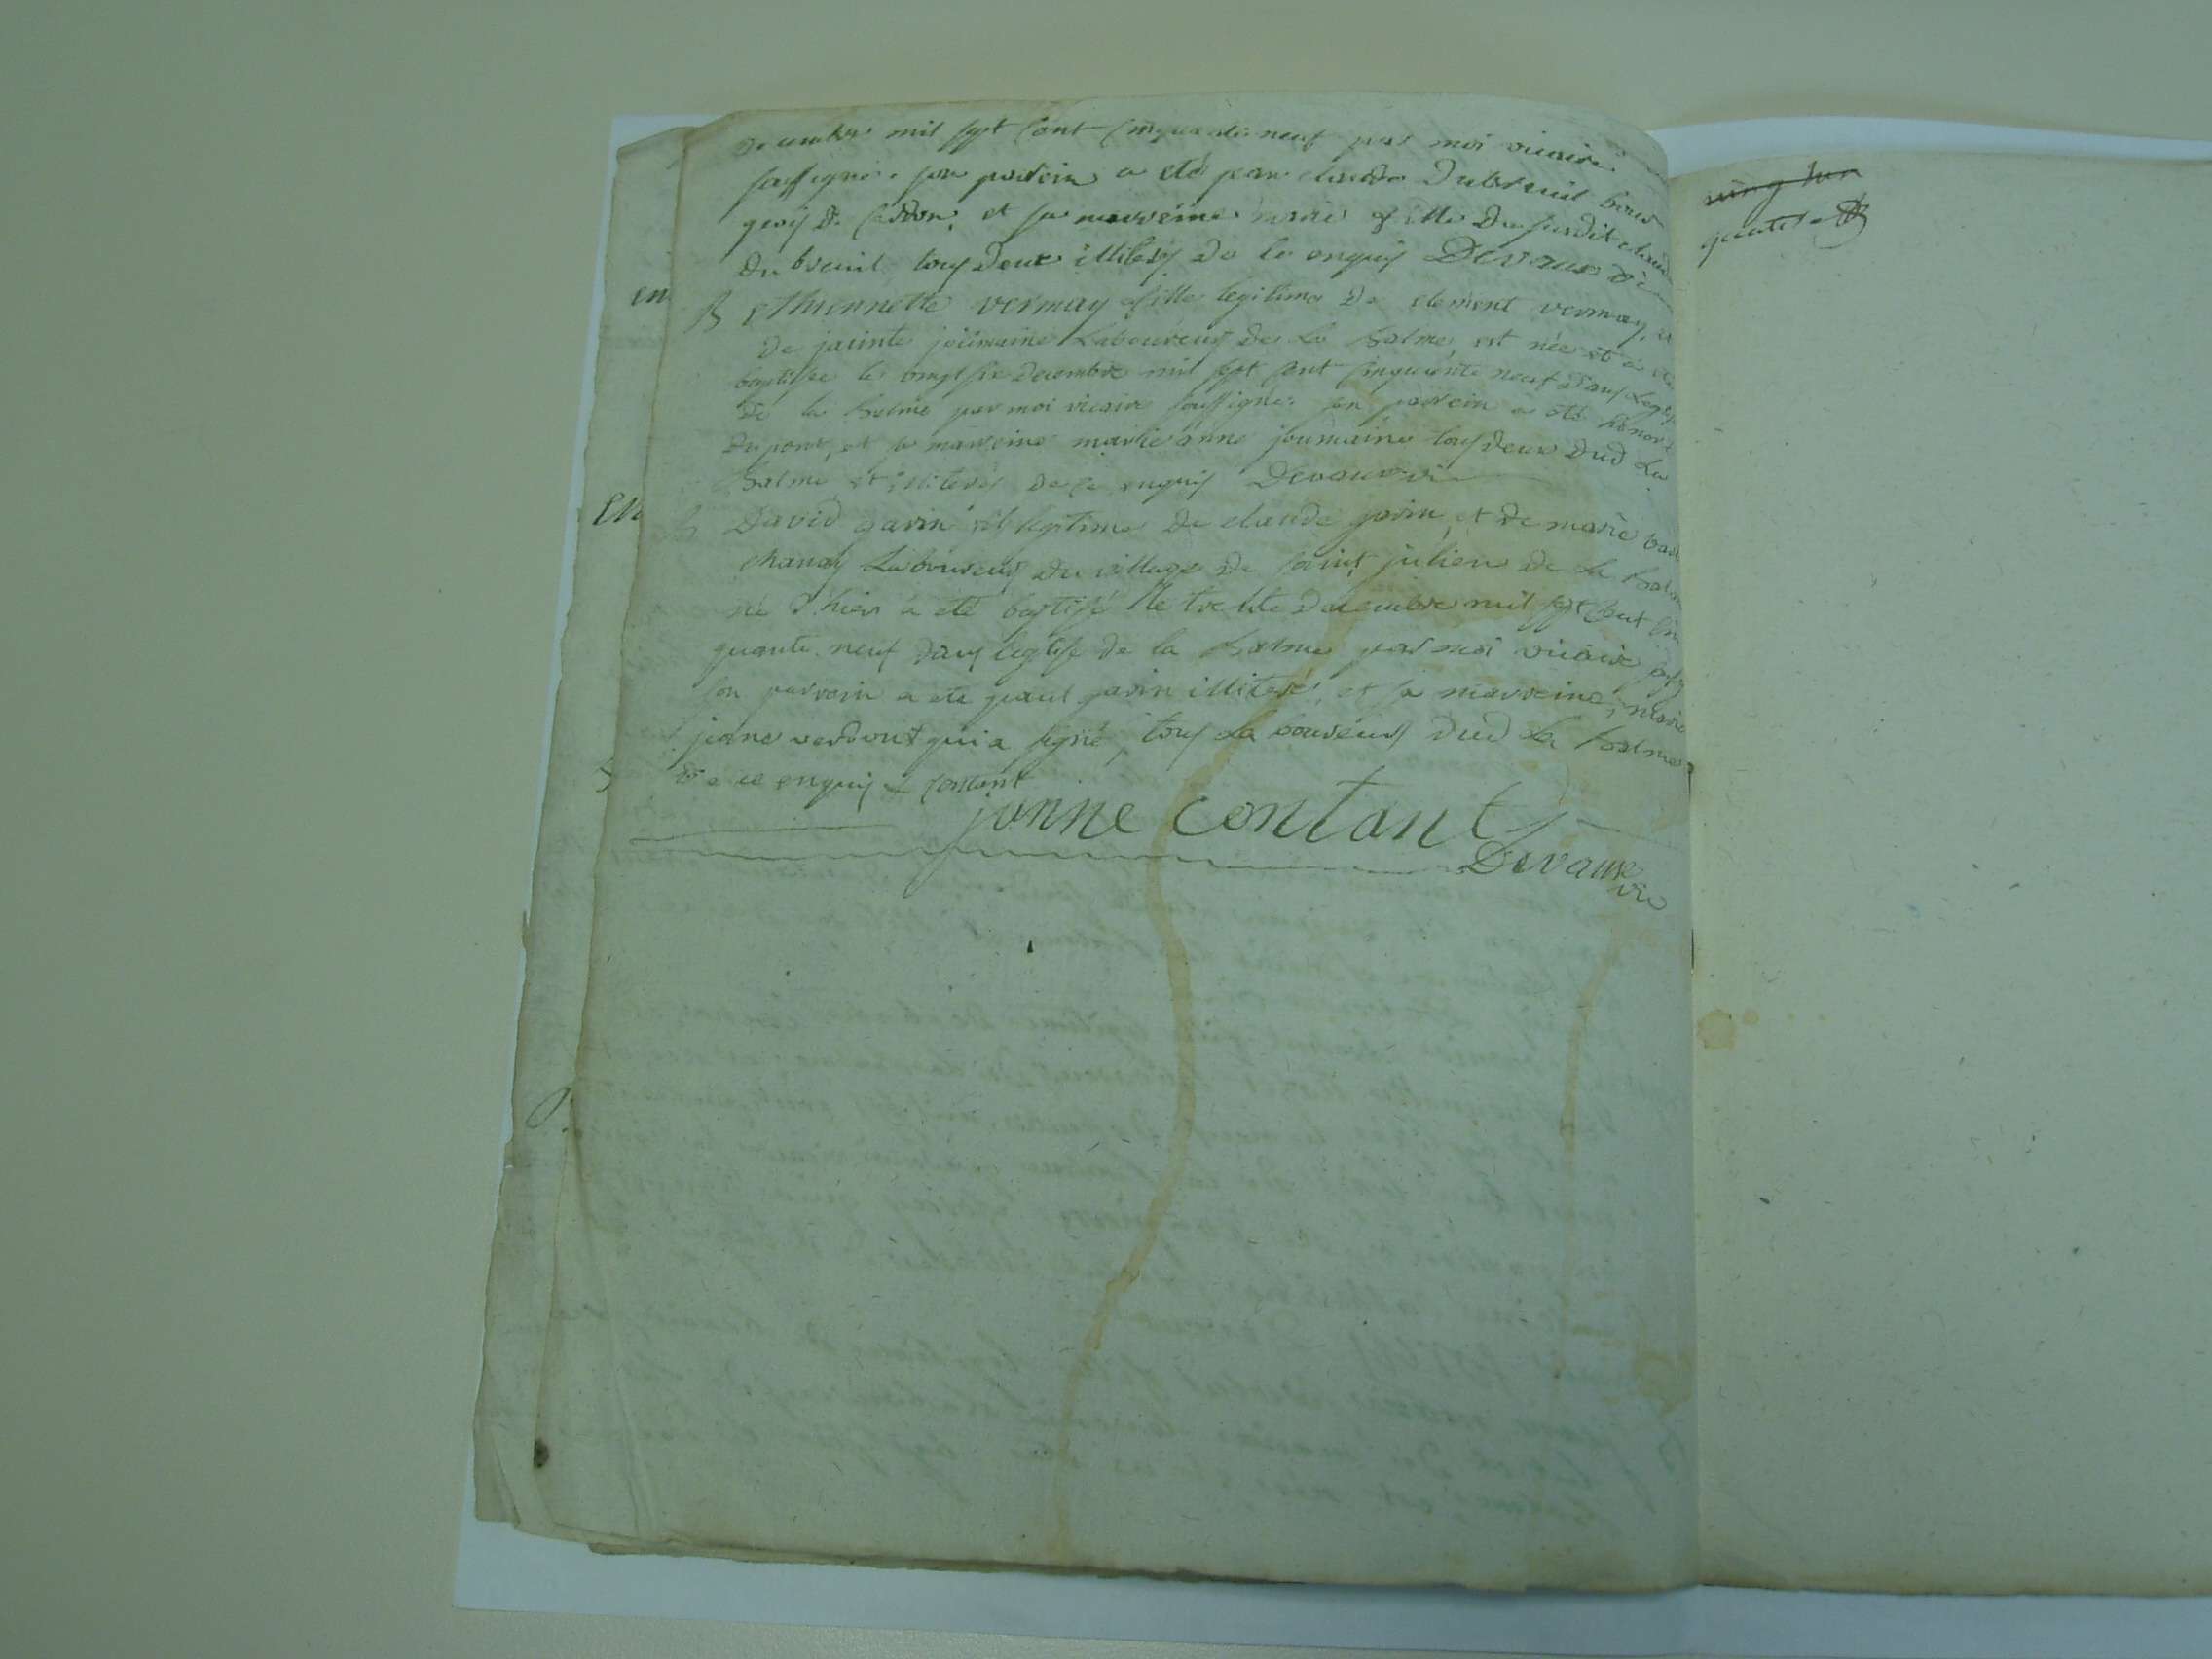 decembre mil sept cent cinquante neuf par moi vicaire
soussigné. son parrein a eté jean claude Dubreuil bour
geois de cerdon, et sa marreine marie fille du susdit claude
du breuil tous deux illiterés de ce enquis Devaux vic
B ethiennette vermay fille legitime de clement vermay, et
de jacinte joumaine Laboureurs de La Balme est née et a eté
baptisée le vingt six decembre mil sept cent cinquante neuf dans leglise
de la Balme par moi vicaire soussigné. son parrein a eté honoré
Dupont, et sa marreine marie anne joumaine tous deux dud La
Balme et illiterés de ce enquis Devaux vic
B David garin fils legitime de claude garin, et de marie
chanay Laboureurs du village de saint julien de la Balme
né d'hier a eté baptisé le trente decembre mil sept cent cin
quante neuf dans leglise de la Balme par moi vicaire
son parrein a eté paul garin illiteré, et sa marreine, marie
jeane qui a signé, tous Laboureurs dud La Balme
de ce enquis contant
jonne contant
Devaux
vic
quatre